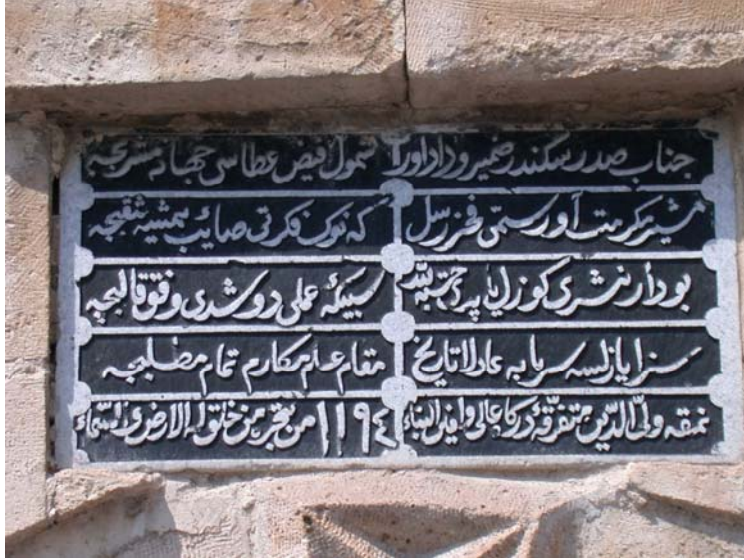 جناب صدر سكندر ضمير و داد اورا شمول فيض عطاسى جهانه مشربجه
مشير مكرمت آور سمى فخر رسل كه نوك فكرتى صائب همشيه ثقبجه
بو دار نشرى كوزل ياپدى حسبة لله سبيكه عملى دوشدى وفق قالبجه
سزا يازلسه سر بابه عادلا تاريخ مقام علم مكارم تمام مطلبجه
نمقه ولى الدين متفرقه دركاه عالى وامين البناء ١١٩٤ من هجرة من خلق له الارض والسماء